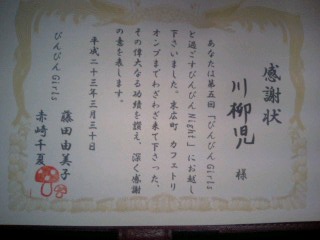 感謝状
川柳児 様
あなたは第五回「びんびんGirls
と過ごすびんびんNight」にお越し
下さいました。末広町 カフェトリ
オンプまでわざわざ来て下さった、
その偉大なる功績を讃え、深く感謝
の意を表します。
平成二十三年三月三十日
びんびんGirls
藤田由美子
赤崎千夏